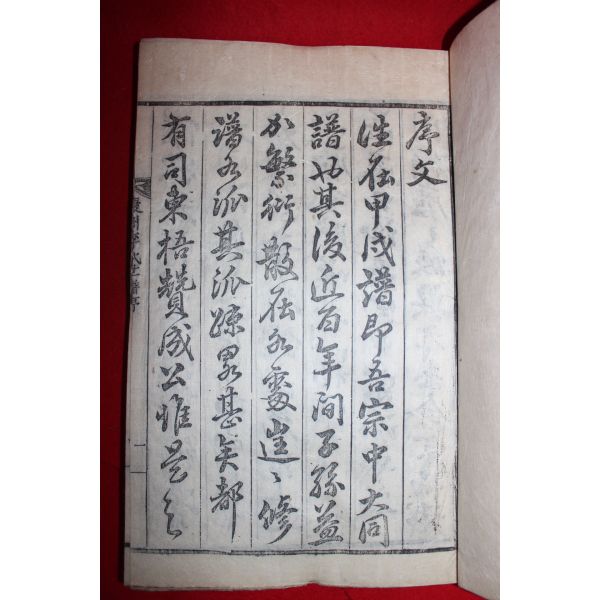 序文
往在甲戌譜即吾宗中大同
譜也其後近百年間子孫益
繁衍散在各處往〻修
譜各派其派疎畧甚矣都
有司東梧贊成公惟是之
慶州李氏世譜序 一